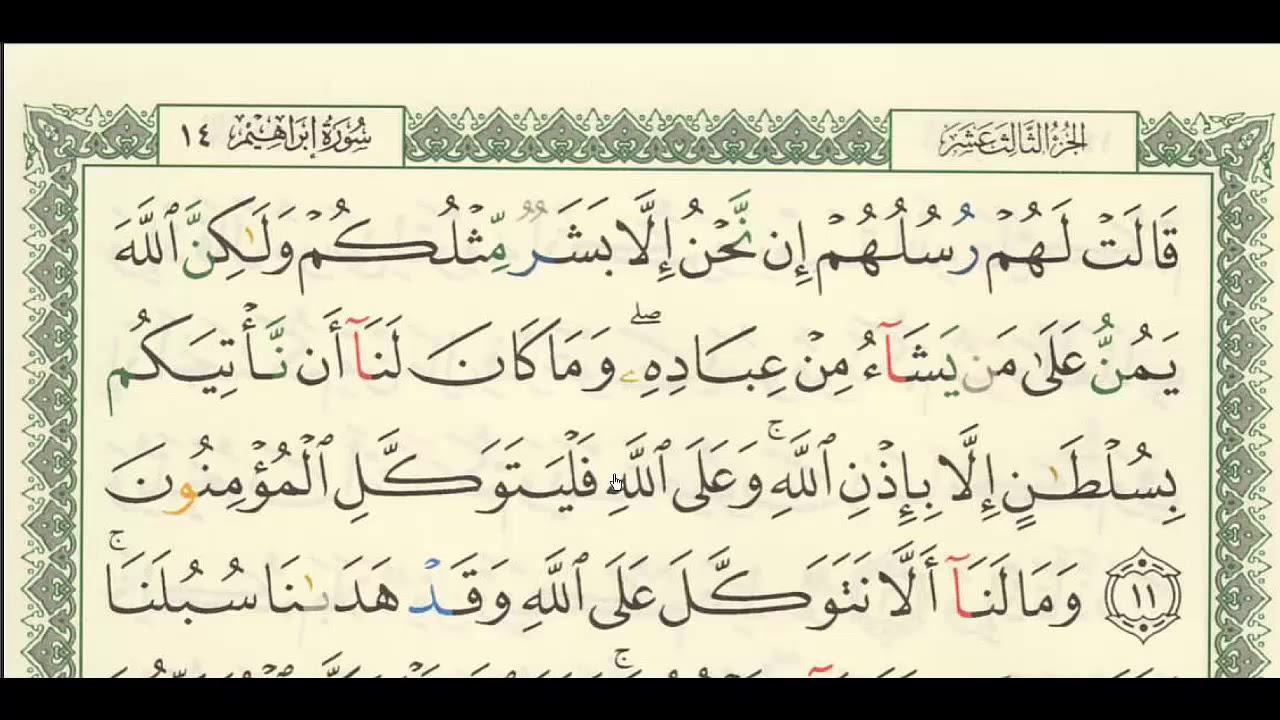 الجزء الثالث عشر
سورة إبراهيم ١٤
قَالَتْ لَهُمْ رُسُلُهُمْ إِن نَّحْنُ إِلَّا بَشَرٌ مِّثْلُكُمْ وَلَٰكِنَّ ٱللَّهَ
يَمُنُّ عَلَىٰ مَن يَشَآءُ مِنْ عِبَادِهِۦ ۖ وَمَا كَانَ لَنَآ أَن نَّأْتِيَكُم
بِسُلْطَٰنٍ إِلَّا بِإِذْنِ ٱللَّهِ ۚ وَعَلَى ٱللَّهِ فَلْيَتَوَكَّلِ ٱلْمُؤْمِنُونَ
١١ وَمَا لَنَآ أَلَّا نَتَوَكَّلَ عَلَى ٱللَّهِ وَقَدْ هَدَىٰنَا سُبُلَنَا ۚ